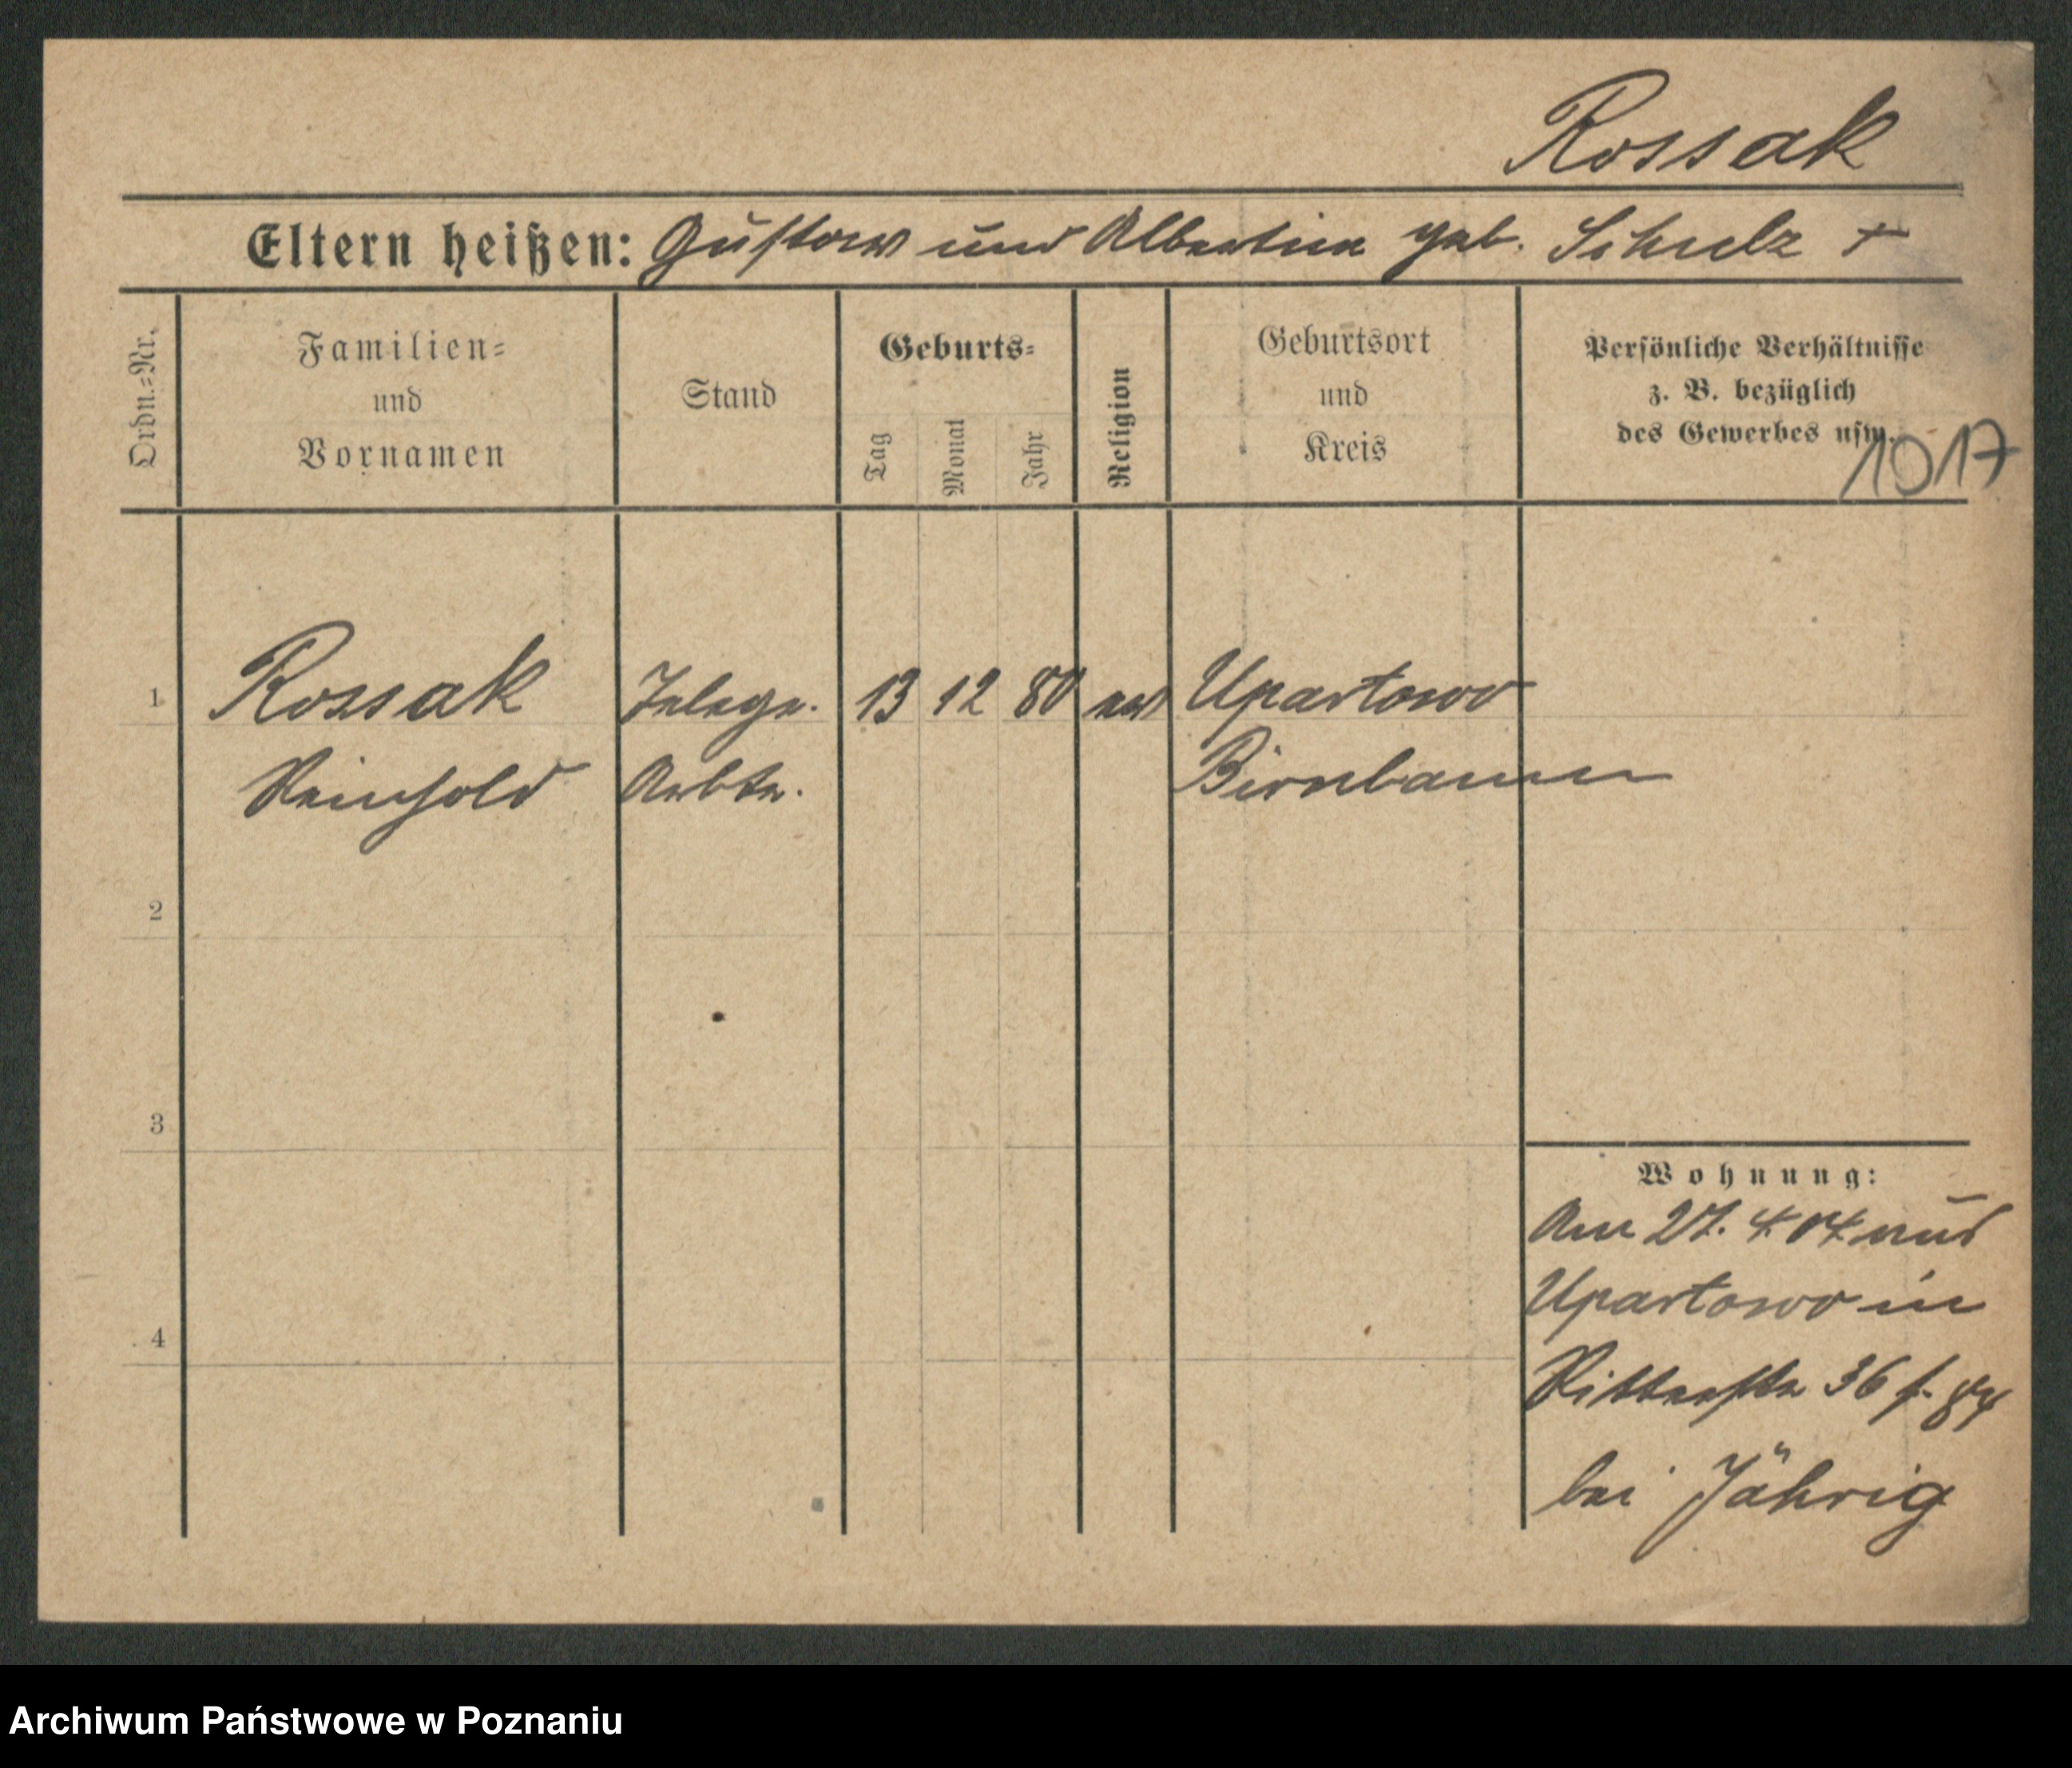 Rossak
Eltern heißen: Gustaw und Albertine geb. Schulz +
Ordn.-Nr.
Familien-
und
Vornamen
Stand
Geburts-
Tag
Monat
Jahr
Religion
Geburtsort
und
Kreis
Persönliche Verhältnisse
z. B. bezüglich
des Gewerbes usw.
1017
1 Rossak Telegr. 13 12 80 Upartowo
Reinhold Arbtr. Birnbaum
2
3
4
Wohnung:
Am 27. 4. 04 aus
Upartowo in
Ritterstr 36
bei Jährig
Archiwum Państwowe w Poznaniu